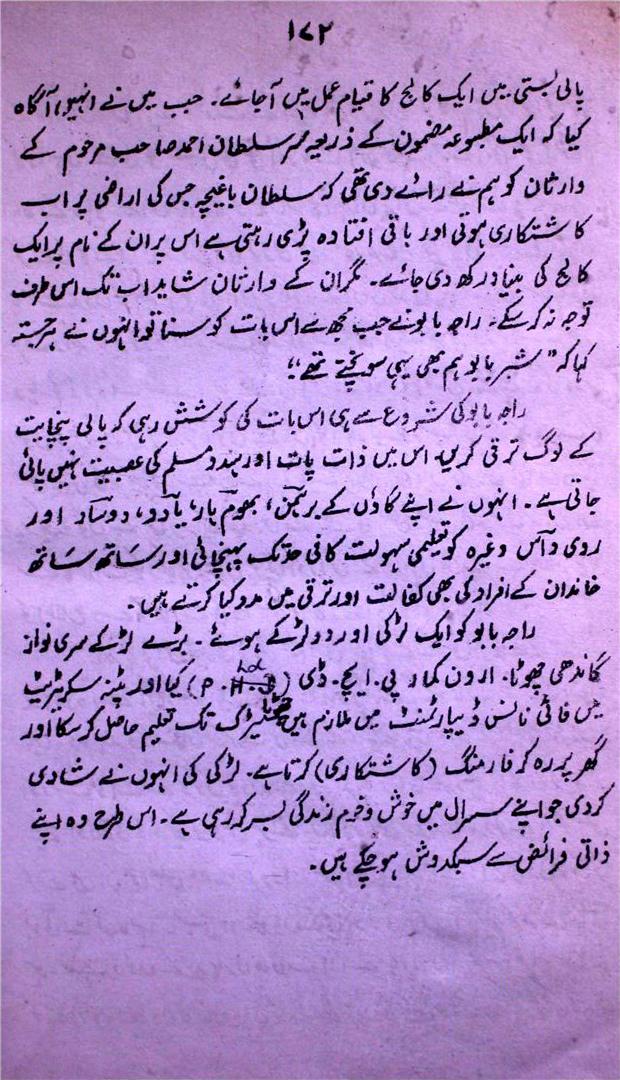 ۱۷۲
پالی بستی میں ایک کالج کا قیام عمل میں آجائے۔ جب میں نے انہیں آگاہ
کیا کہ ایک مطبوعہ مضمون کے ذریعہ ممبر سلطان احمد صاحب مرحوم کے
وارثان کو ہم نے رائے دی تھی کہ سلطان باغیچہ جس کی اراضی پر اب
کاشتکاری ہوتی اور باقی افتادہ پڑی رہتی ہے اس پر ان کے نام پر ایک
کالج کی بنیاد رکھ دی جائے۔ مگر ان کے وارثان شاید اب تک اس طرف
توجہ نہ کر سکے۔ راجہ بابو نے جب مجھ سے اس بات کو سنا تو انہوں نے برجستہ
کہا کہ " شبر بابو ہم بھی یہی سوچتے تھے"
راجہ بابو کی شروع سے ہی اس بات کی کوشش رہی کہ پالی پنچایت
کے لوگ ترقی کریں۔ اس میں ذات پات اور ہندو مسلم کی عصبیت نہیں پائی
جاتی ہے۔ انہوں نے اپنے گاؤں کے برہمن، بھوم ہار، یادو، دوساد اور
روی داس وغیرہ کو تعلیمی سہولت کافی حد تک پہنچائی اور ساتھ ساتھ
خاندان کے افراد کی بھی کفالت اور ترقی میں مدد کیا کرتے ہیں۔
راجہ بابو کو ایک لڑکی اور دو لڑکے ہوئے۔ بڑے لڑکے مری نواز
گاندھی چھوٹا۔ ارون کمار پی۔ ایچ۔ ڈی (P. hd) کیا اور پٹنہ سکریٹریٹ
میں فائی نانس ڈیپارٹمنٹ میں ملازم ہیں میٹرک تک تعلیم حاصل کر سکا اور
گھر پر رہ کر فارمنگ (کاشتکاری) کرتا ہے۔ لڑکی کی انہوں نے شادی
کردی جو اپنے سسرال میں خوش و خرم زندگی بسر کر رہی ہے۔ اس طرح وہ اپنے
ذاتی فرائض سے سبکدوش ہو چکے ہیں۔